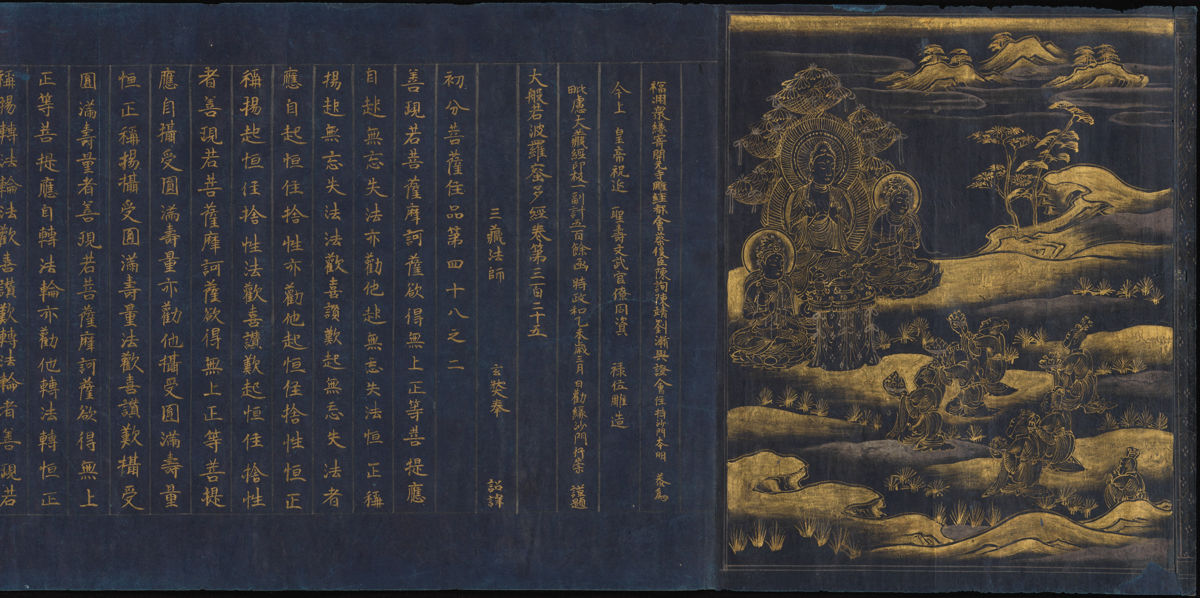 福州眾緣寄開元寺雕經都會蔡俊臣陳詢陳靖劉漸與證會住持沙門本明 恭為
今上 皇帝祝延 聖壽文武官僚同資 祿位雕造
毗盧大藏經印板一副計五百餘函 時政和乙未歲三月 日勸緣沙門行崇 謹題
大般若波羅蜜多經卷第三百二十五
三藏法師 玄奘奉 詔譯
初分菩薩住品第四十八之二
善現若菩薩摩訶薩欲得無上正等菩提應
自起無忘失法亦勸他起無忘失法恒正稱
揚起無忘失法法歡喜讚歎起無忘失法者
應自起恒住捨性亦勸他起恒住捨性恒正
稱揚起恒住捨性法歡喜讚歎起恒住捨性
者善現若菩薩摩訶薩欲得無上正等菩提
應自攝受圓滿壽量亦勸他攝受圓滿壽量
恒正稱揚攝受圓滿壽量法歡喜讚歎攝受
圓滿壽量者善現若菩薩摩訶薩欲得無上
正等菩提應自轉法輪亦勸他轉法輪恒正
稱揚轉法輪法歡喜讚歎轉法輪者善現若